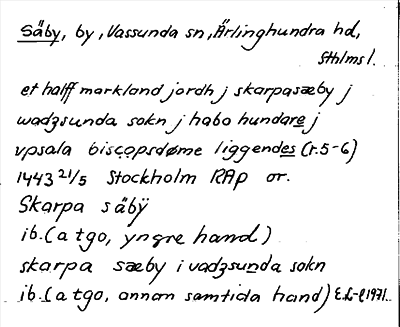 Säby, by, Vassunda sn, Ärlinghundra hd,
Sthlms l.
et halff markland jordh j skarpasæby j
wadzsunda sokn j habo hundare j
vpsala biscopsdøme liggendes (r. 5-6)
1443 21/5 Stockholm RAp or.
Skarpa säbÿ
ib. (a tgo, yngre hand)
skarpa sæby i vadzsunda sokn
ib. (a tgo, annan samtida hand) E.L-l 1971.